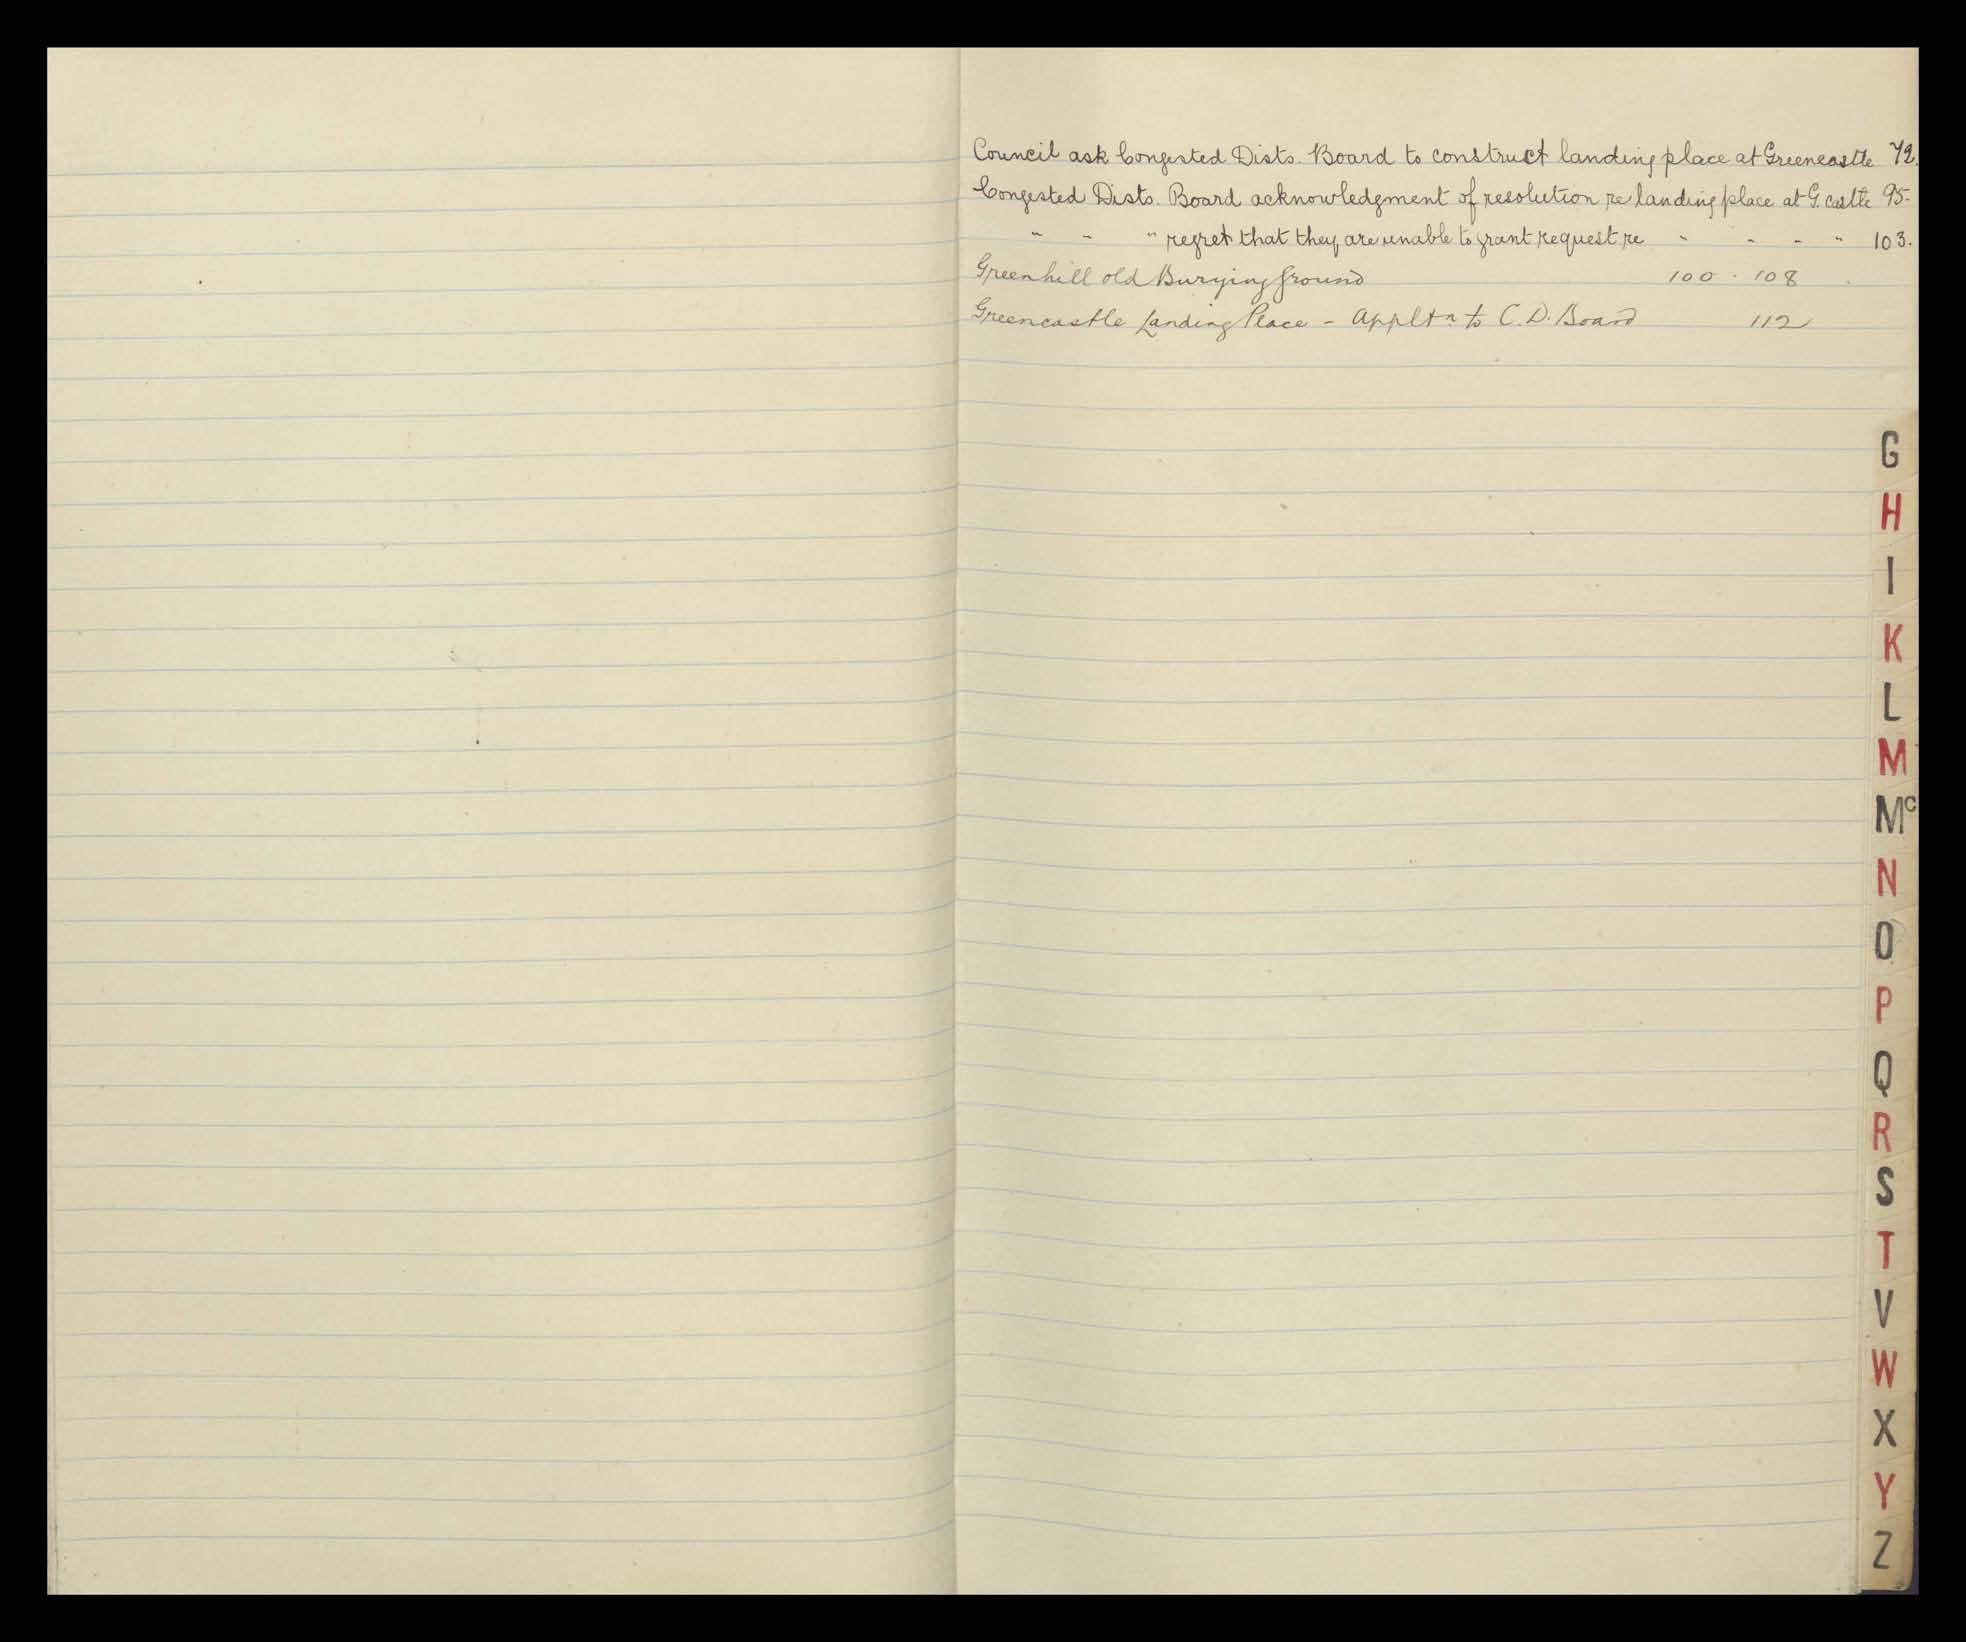 Council ask Congested Dists. Board to construct landing place at Greencastle 72.
Congested Dists. Board acknowledgment of resolution re landing place at G. castle 95.
" " " regret that they are unable to grant request re " " " " 103.
Greenhill old Burying ground 100 . 108
Greencastle Landing Place - Appltn to C.D. Board 112
G
H
I
K
L
M
Mc
N
O
P
Q
R
S
T
V
W
X
Y
Z